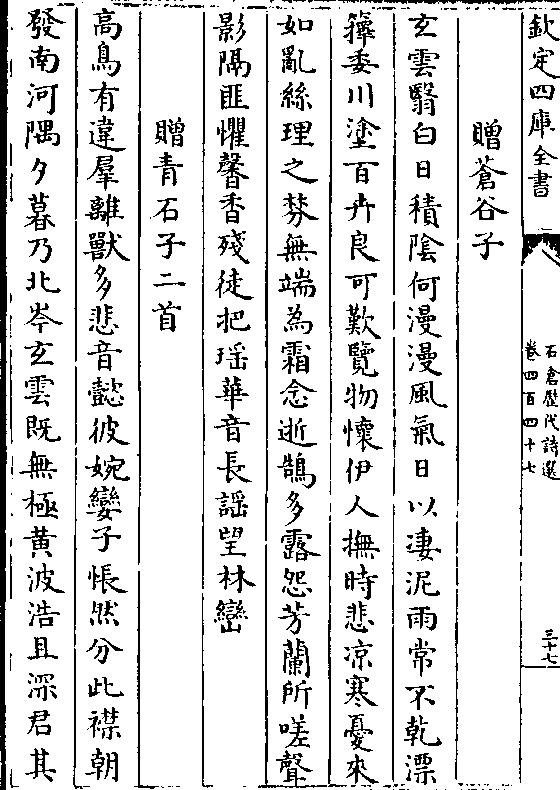 欽定四庫全書
石倉歷代詩選
卷四百四十七
三十七
贈蒼谷子
玄雲翳白日積陰何漫漫風氣日以淒泥雨常不乾漂
籜委川塗百卉良可歎覽物懷伊人撫時悲凉寒憂來
如亂絲理之棼無端為霜念逝鵠多露怨芳蘭所嗟聲
影隔匪懼馨香殘徒把瑶華音長謡望林巒
贈青石子二首
高鳥有違羣離獸多悲音懿彼婉孌子悵然分此襟朝
發南河隅夕暮乃北岑玄雲既無極黄波浩且深君其